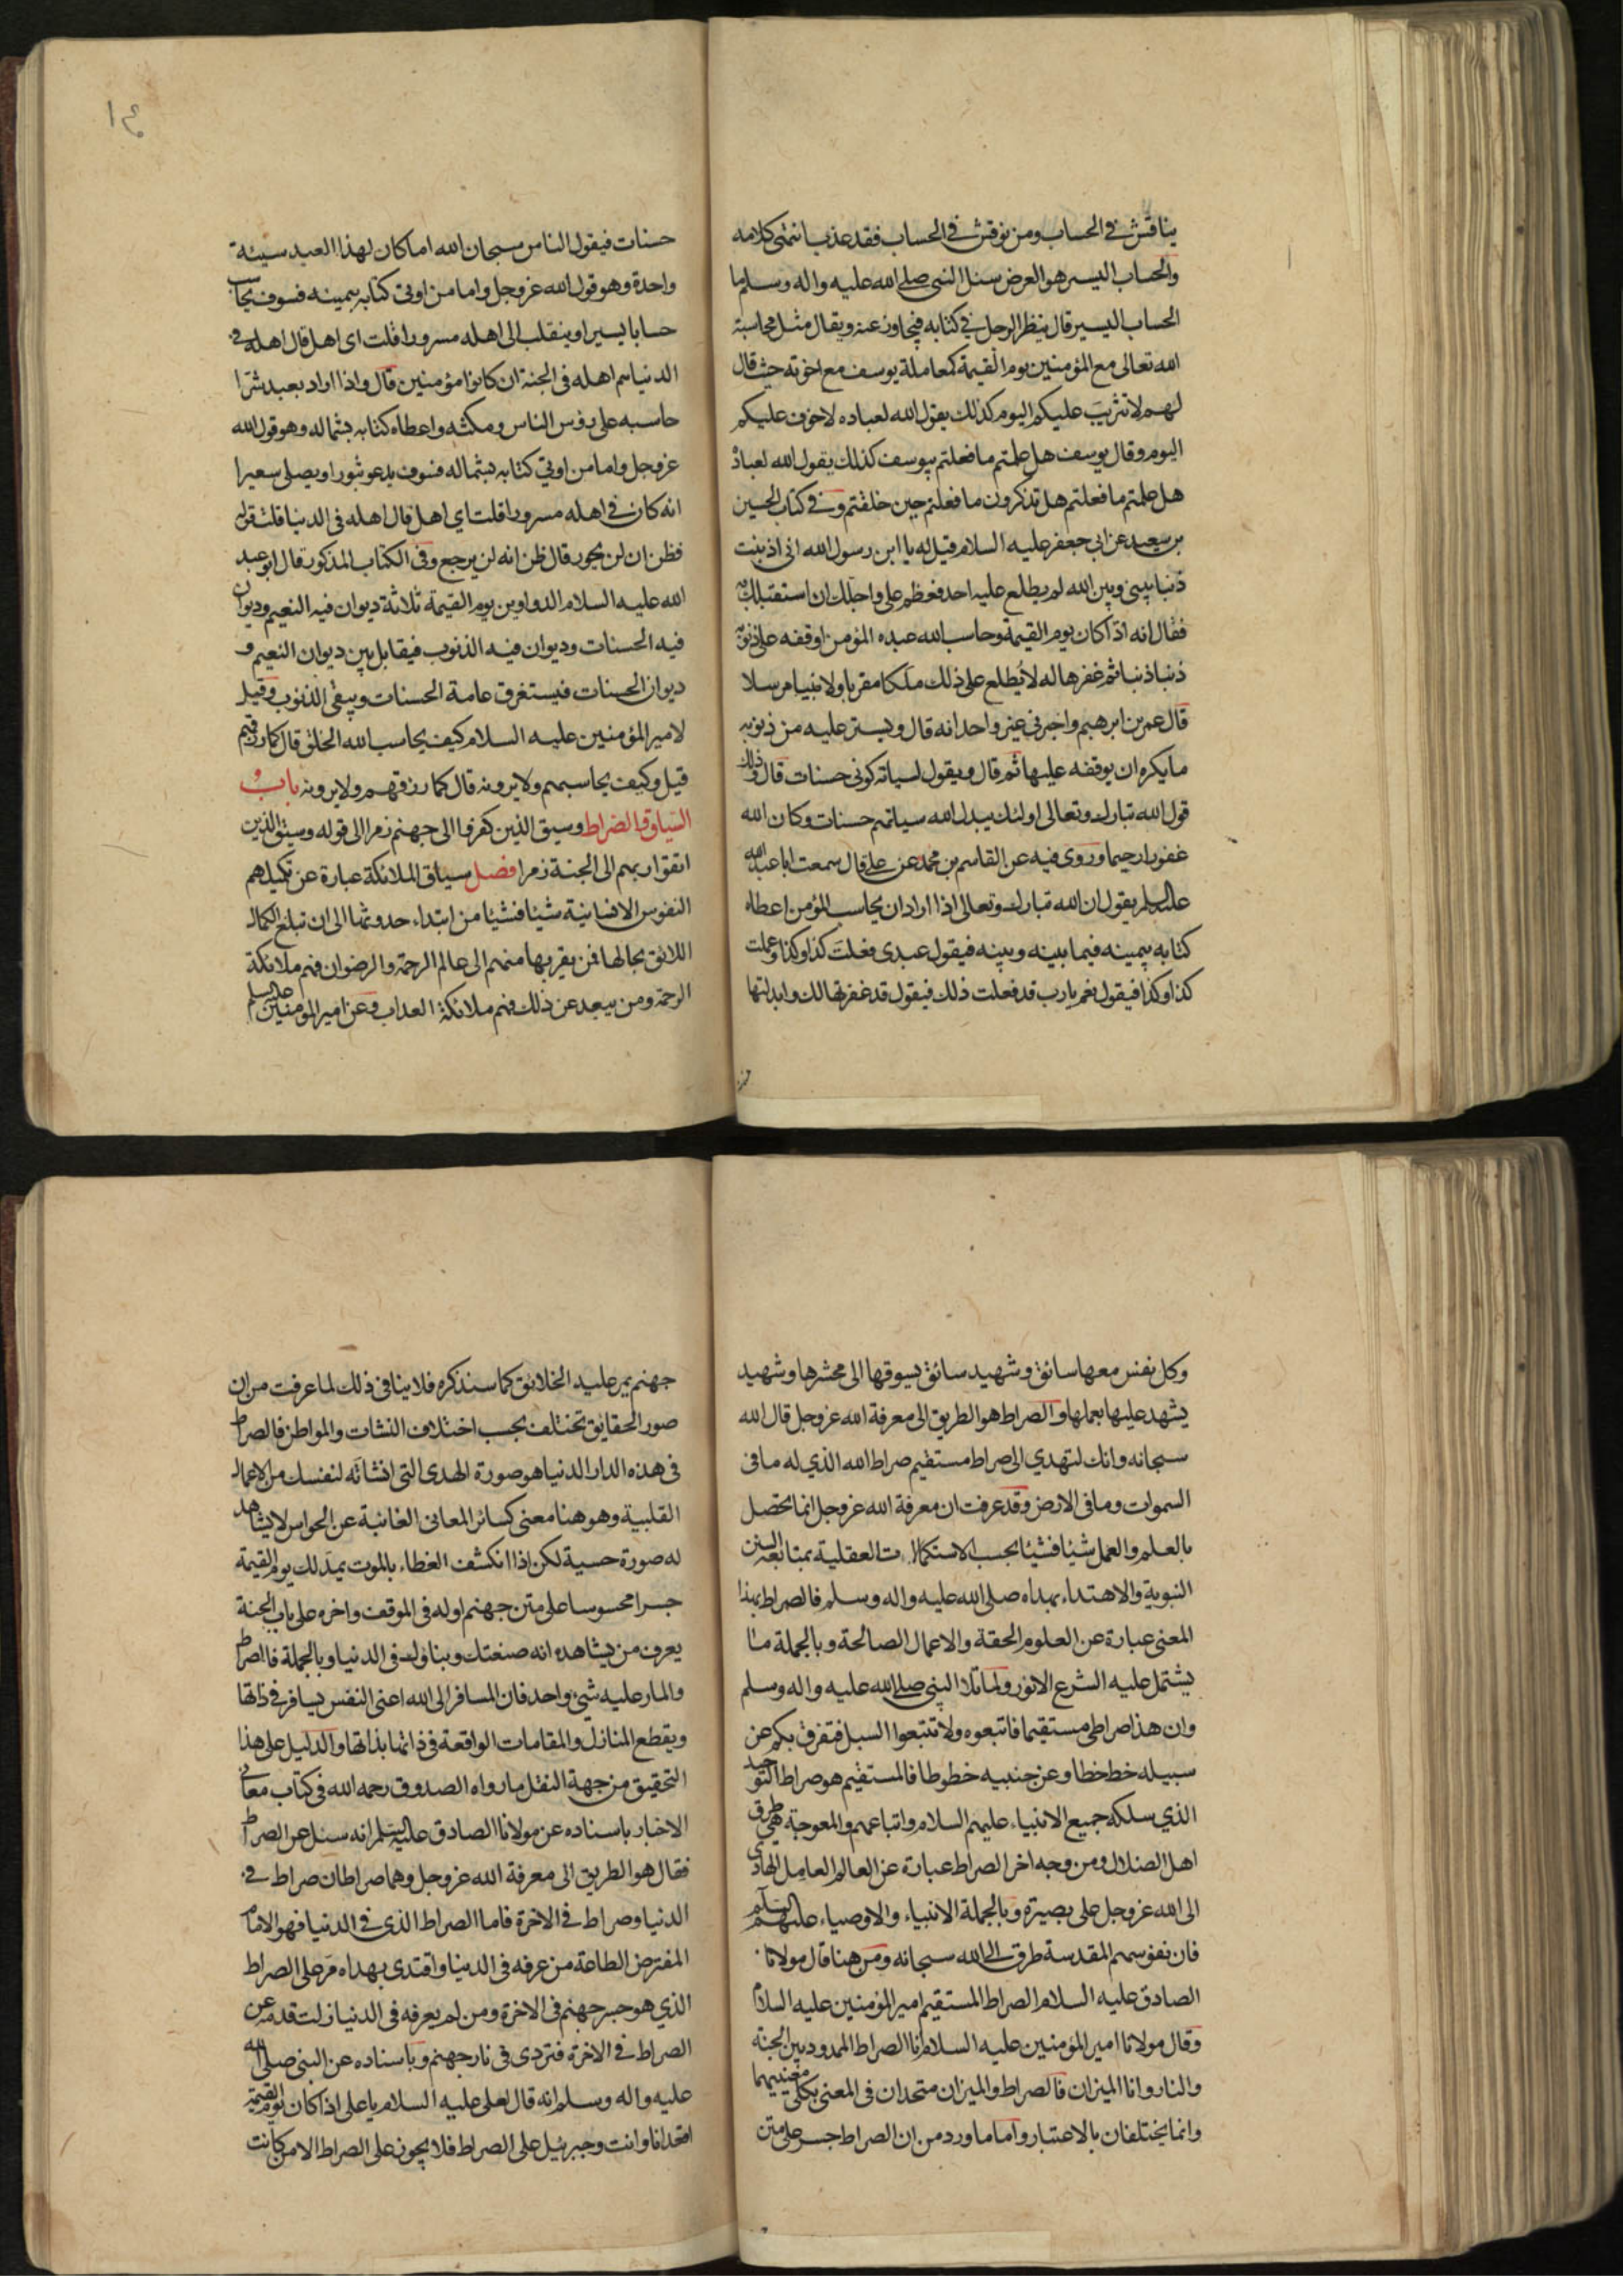 يناقش في الحساب ومن نوقش في الحساب فقد عذب انتهى كلامه
والحساب اليسير هو العرض سئل النبي صلى الله عليه واله وسلم ما
الحساب اليسير قال ينظر الرجل في كتابه فيتجاوز عنه ويقال مثل محاسبة
الله تعالى مع المؤمنين يوم القيمة كمعاملة يوسف مع اخوته حيث قال
لهم لا تثريب عليكم اليوم كذلك يقول الله لعباده لا خوف عليكم
اليوم وقال يوسف هل علمتم ما فعلتم بيوسف كذلك يقول الله لعباده
هل علمتم ما فعلتم هل تذكرون ما فعلتم حين خلفتم وفي كتاب الحسين
بن سعيد عن ابي جعفر عليه السلام قيل له يا ابن رسول الله اني اذنبت
ذنبا بيني وبين الله لم يطلع عليه احد فعظم علي واجلك ان استقبلك به
فقال انه اذا كان يوم القيمة وحاسب الله عبده المؤمن اوقفه على ذنوبه
ذنبا ذنبا ثم غفرها له لا يطلع على ذلك ملكا مقربا ولا نبيا مرسلا
قال عمر بن ابرهيم واخبرني عن غير واحد انه قال ويستر عليه من ذنوبه
ما يكره ان يوقفه عليها ثم قال ويقول لسياته كوني حسنات قال وذلك
قول الله تبارك وتعالى اولئك يبدل الله سياتهم حسنات وكان الله
غفورا رحيما وروى فيه عن القاسم بن محمد عن علي قال سمعت ابا عبد الله
عليه السلم يقول ان الله تبارك وتعالى اذا اراد ان يحاسب المؤمن اعطاه
كتابه بيمينه فيما بينه وبينه فيقول عبدي فعلت كذا وكذا وعملت
كذا وكذا فيقول نعم يا رب قد فعلت ذلك فيقول قد غفرتها لك وابدلتها
١٤
حسنات فيقول الناس سبحان الله اما كان لهذا العبد سيئة
واحدة وهو قول الله عز وجل واما من اوتي كتابه بيمينه فسوف يحاسب
حسابا يسيرا وينقلب الى اهله مسرورا قلت اي اهل قال اهله في
الدنيا هم اهله في الجنة ان كانوا مؤمنين قال واذا اراد بعبد شرا
حاسبه على رؤس الناس ومكثه واعطاه كتابه بشماله وهو قول الله
عز وجل واما من اوتي كتابه بشماله فسوف يدعو ثبورا ويصلى سعيرا
انه كان في اهله مسرورا قلت اي اهل قال اهله في الدنيا قلت قوله
فظن ان لن يحور قال ظن انه لن يرجع وفي الكتاب المذكور قال ابو عبد
الله عليه السلام الدواوين يوم القيمة ثلاثة ديوان فيه النعيم وديوان
فيه الحسنات وديوان فيه الذنوب فيقابل بين ديوان النعيم و
ديوان الحسنات فيستغرق عامة الحسنات ويبقى الذنوب وقيل
لامير المؤمنين عليه السلام كيف يحاسب الله الخلق قال كما رزقهم
قيل وكيف يحاسبهم ولا يرونه قال كما رزقهم ولا يرونه باب و
السياق والصراط وسيق الذين كفروا الى جهنم زمرا الى قوله وسيق الذين
اتقوا ربهم الى الجنة زمرا فصل سياق الملائكة عبارة عن تكميلهم
النفوس الانسانية شيئا فشيئا من ابتداء حدوثها الى ان تبلغ الكمال
اللائق بحالها فمن يقربها منهم الى عالم الرحمة والرضوان فهم ملائكة
الرحمة ومن يبعد عن ذلك فهم ملائكة العذاب وعن امير المؤمنين عليه السلم
وكل نفس معها سائق وشهيد سائق يسوقها الى محشرها وشهيد
يشهد عليها بعملها والصراط هو الطريق الى معرفة الله عز وجل قال الله
سبحانه وانك لتهدي الى صراط مستقيم صراط الله الذي له ما في
السموات وما في الارض وقد عرفت ان معرفة الله عز وجل انما تحصل
بالعلم والعمل شيئا فشيئا بحسب الاستكمالات العقلية بمتابعة السنن
النبوية والاهتداء بهداه صلى الله عليه واله وسلم فالصراط بهذا
المعنى عبارة عن العلوم الحقة والاعمال الصالحة وبالجملة ما
يشتمل عليه الشرع الانور ولما تلا النبي صلى الله عليه واله وسلم
وان هذا صراطي مستقيما فاتبعوه ولا تتبعوا السبل فتفرق بكم عن
سبيله خط خطا وعن جنبيه خطوطا فالمستقيم هو صراط التوحيد
الذي سلكه جميع الانبياء عليهم السلام واتباعهم والمعوجة هي طرق
اهل الضلال ومن وجه اخر الصراط عبارة عن العالم العامل الهادي
الى الله عز وجل على بصيرة وبالجملة الانبياء والاوصياء عليهم السلام
فان نفوسهم المقدسة طرق الى الله سبحانه ومن هنا قال مولانا
الصادق عليه السلام الصراط المستقيم امير المؤمنين عليه السلام
وقال مولانا امير المؤمنين عليه السلام انا الصراط الممدود بين الجنة
والنار وانا الميزان فالصراط والميزان متحدان في المعنى بكلي معنييهما
وانما يختلفان بالاعتبار واما ما ورد من ان الصراط جسر على متن
جهنم يمر عليه الخلائق كما سنذكره فلا ينافي ذلك لما عرفت من ان
صور الحقايق تختلف بحسب اختلاف النشات والمواطن فالصراط
في هذه الدار الدنيا هو صورة الهدى التي انشاته لنفسك من الاعمال
القلبية وهو هنا معنى كسائر المعاني الغائبة عن الحواس لا يشاهد
له صورة حسية لكن اذا انكشف الغطاء بالموت يمد لك يوم القيمة
جسرا محسوسا على متن جهنم اوله في الموقف واخره على باب الجنة
يعرف من يشاهده انه صنعتك وبناؤك في الدنيا وبالجملة فالصراط
والمار عليه شيء واحد فان المسافر الى الله اعني النفس يسافر في ذاتها
ويقطع المنازل والمقامات الواقعة في ذاتها بذاتها والدليل على هذا
التحقيق من جهة النقل ما رواه الصدوق رحمه الله في كتاب معاني
الاخبار باسناده عن مولانا الصادق عليه السلم انه سئل عن الصراط
فقال هو الطريق الى معرفة الله عز وجل وهما صراطان صراط في
الدنيا وصراط في الاخرة فاما الصراط الذي في الدنيا فهو الامام
المفترض الطاعة من عرفه في الدنيا واقتدى بهداه مر على الصراط
الذي هو جسر جهنم في الاخرة ومن لم يعرفه في الدنيا زلت قدمه عن
الصراط في الاخرة فتردى في نار جهنم وباسناده عن النبي صلى الله
عليه واله وسلم انه قال لعلي عليه السلام يا علي اذا كان يوم القيمة
اقعد انا وانت وجبرئيل على الصراط فلا يجوز على الصراط الا من كانت